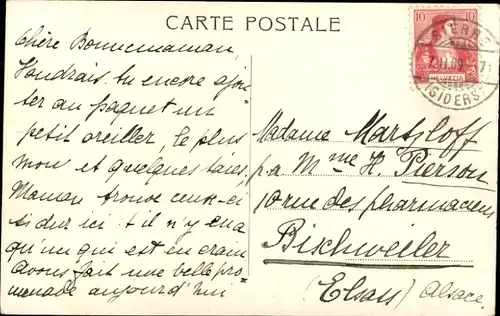 CARTE POSTALE
Chère Bonnemaman,
Voudrais-tu encore ajou-
ter au paquet un
petit oreiller, le plus
mou et quelques taies.
Maman trouve ceux-ci
si dur ici : il n'y en a
qu'un qui est en crain
Avons fait une belle pro-
menade aujourd'hui
10 10
HELVETIA
SIERRE
II.09
(SIDERS)
Madame Martzloff
p.a Mme H. Pierson
10 rue des pharmaciens
Bischweiler
(Elsass) Alsace.